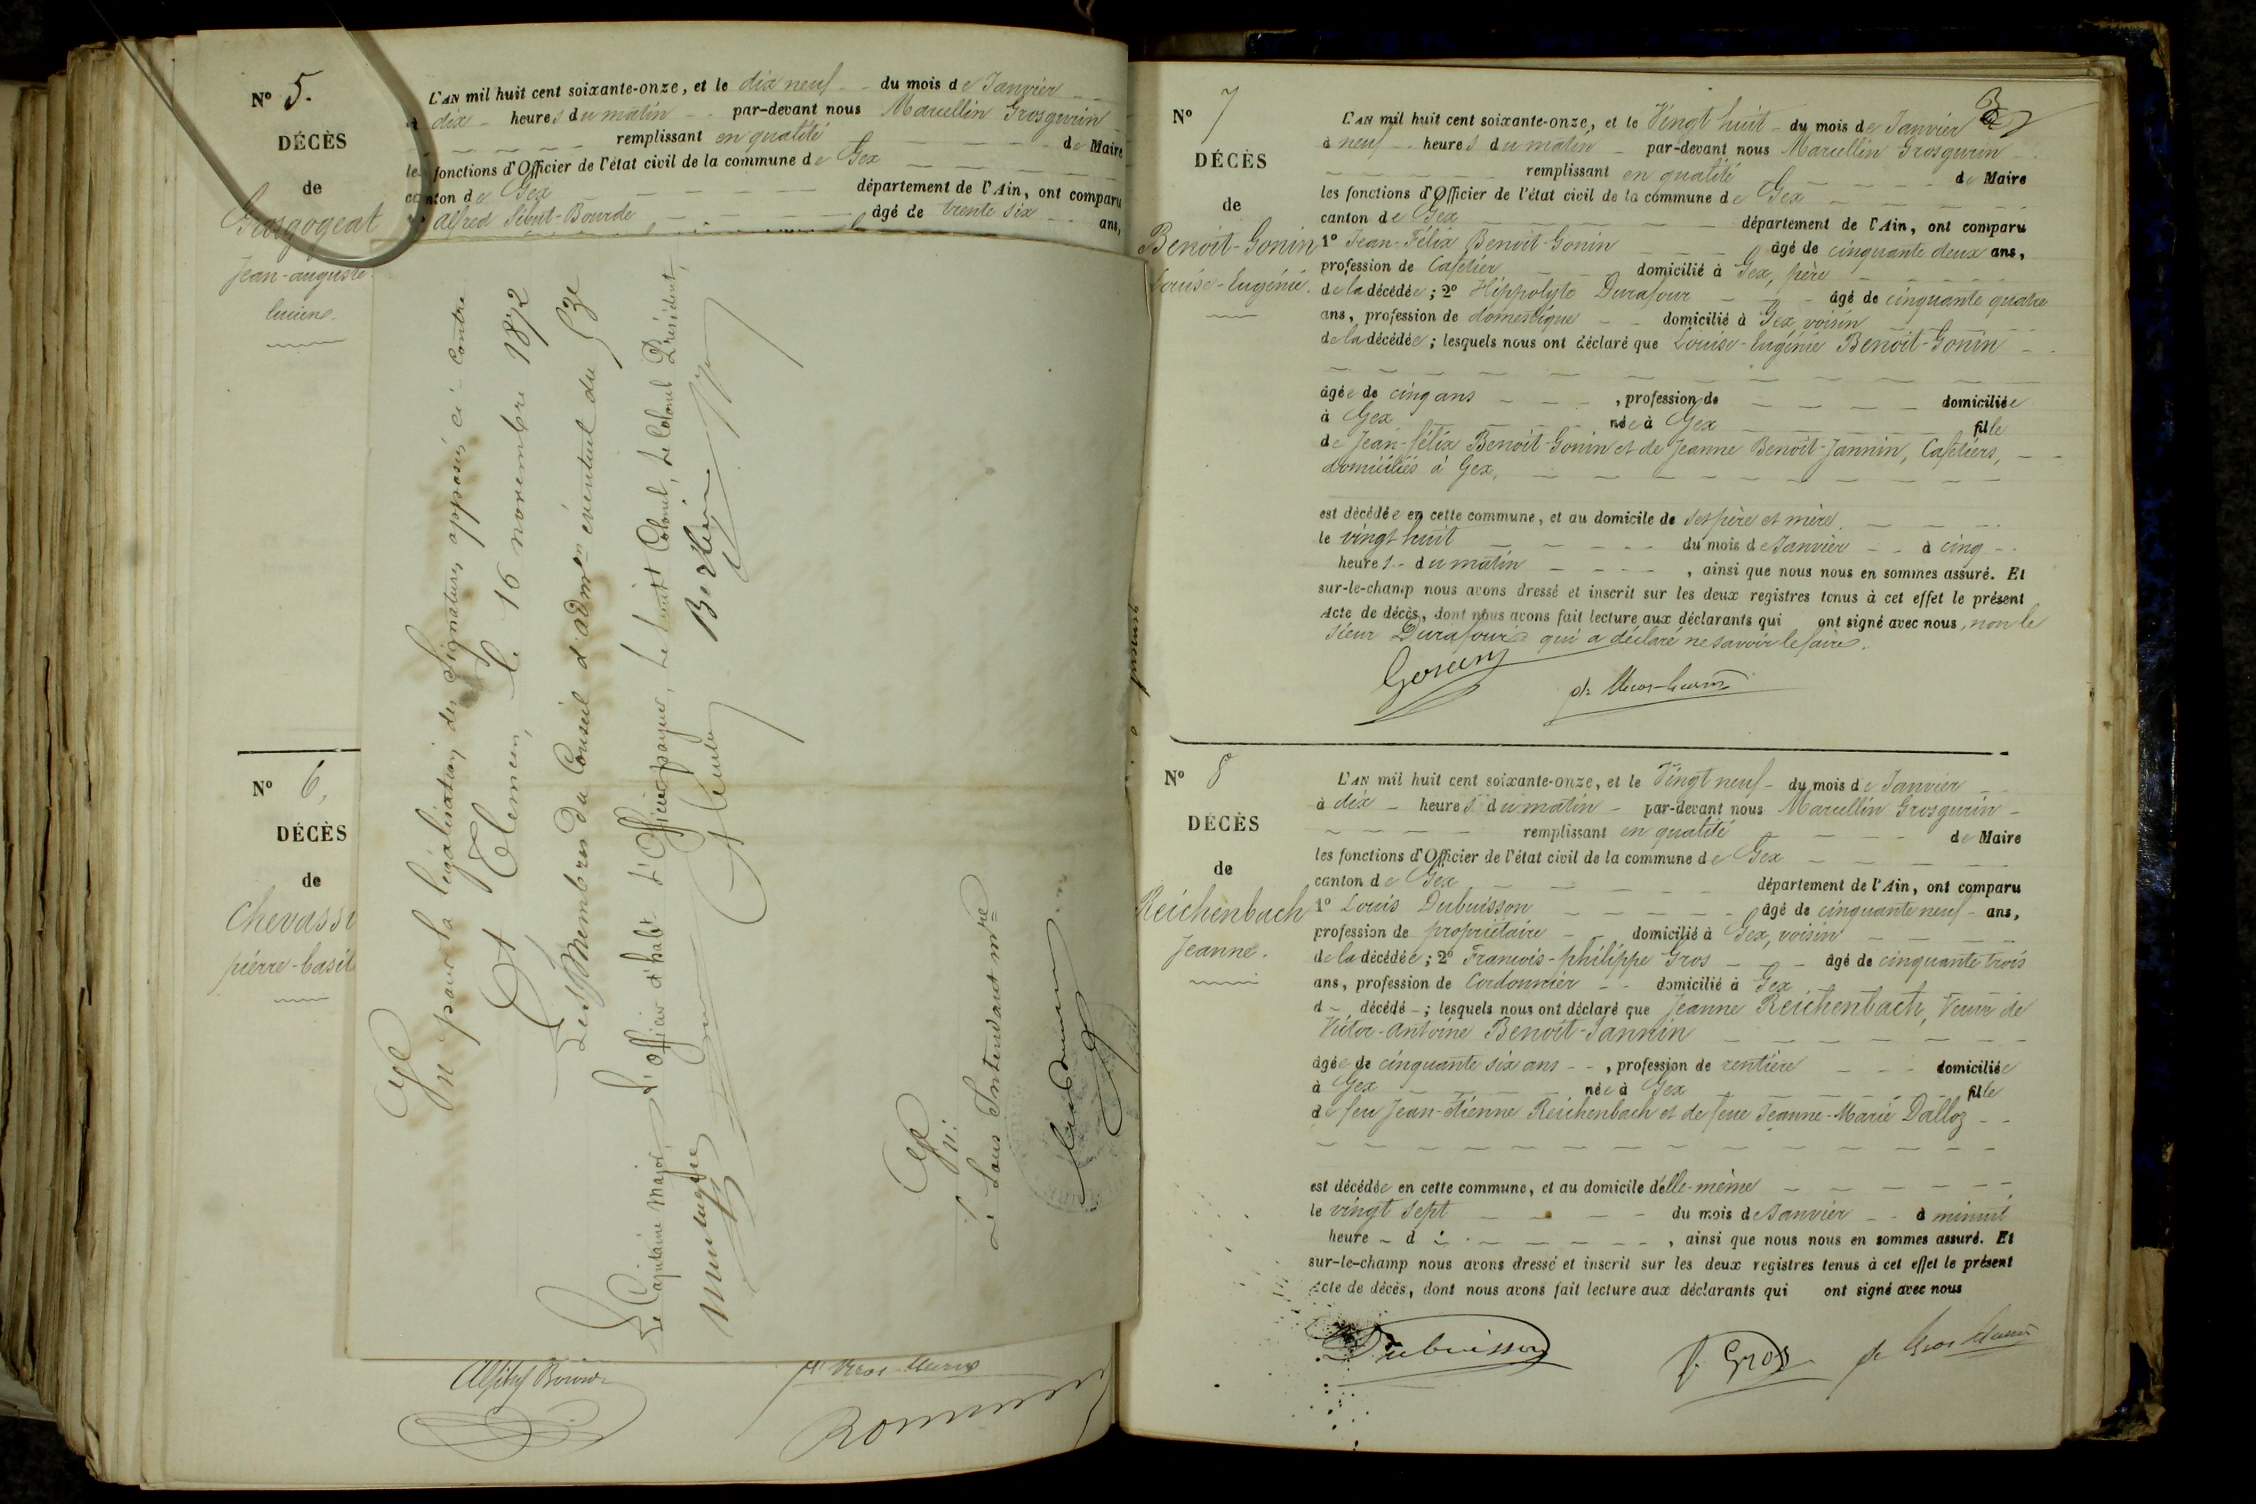 N° 5.
DÉCÈS
de
Grosgogeat
Jean-auguste
lucien.
L'AN mil huit cent soixante-onze, et le dix neuf du mois de Janvier
à dix heures du matin par-devant nous Marcellin Grosgurin
remplissant en qualité de Maire
les fonctions d'Officier de l'état civil de la commune de Gex
canton de Gex département de l'Ain, ont comparu
1° alfred Sibut-Bourde âgé de trente six ans,
N° 6,
DÉCÈS
de
Chevass
pierre-basil
Vu pour la légalisation des Signatures apposées ci-contre
A Tlemcen, le 16 novembre 1872
Les Membres du Conseil d'admon éventuel du
Le Capitaine Major L'officier d'habt L'Officier payeur, Le Lieutt Colonel, Le Colonel Président,
Vu:
Le Sous Intendant mre
N° 7
DÉCÈS
de
Benoit-Gonin
Louise-Eugénie.
3
L'AN mil huit cent soixante-onze, et le Vingt huit du mois de Janvier
à neuf heures du matin par-devant nous Marcellin Grosgurin
remplissant en qualité de Maire
les fonctions d'Officier de l'état civil de la commune de Gex
canton de Gex département de l'Ain, ont comparu
1° Jean-Félix Benoit-Gonin âgé de cinquante deux ans,
profession de Cafetier domicilié à Gex, père
de la décédée; 2° Hippolyte Durafour âgé de cinquante quatre
ans, profession de domestique domicilié à Gex, voisin
de la décédée; lesquels nous ont déclaré que Louise-Eugénie Benoit-Gonin
âgée de cinq ans, profession de domiciliée
à Gex née à Gex fille
de Jean-félix Benoit-Gonin et de Jeanne Benoit-Jannin, Cafetiers,
domiciliés à Gex,
est décédée en cette commune, et au domicile de ses père et mère.
le vingt huit du mois de Janvier à cinq
heures du matin, ainsi que nous nous en sommes assuré. Et
sur-le-champ nous avons dressé et inscrit sur les deux registres tenus à cet effet le présent
Acte de décès, dont nous avons fait lecture aux déclarants qui ont signé avec nous, non le
Sieur Durafour qui a déclaré ne savoir le faire.
N° 8
DÉCÈS
de
Reichenbach
Jeanne.
L'AN mil huit cent soixante-onze, et le Vingt neuf du mois de Janvier
à dix heures du matin par-devant nous Marcellin Grosgurin
remplissant en qualité de Maire
les fonctions d'Officier de l'état civil de la commune de Gex
canton de Gex département de l'Ain, ont comparu
1° Louis Dubuisson âgé de cinquante neuf ans,
profession de propriétaire domicilié à Gex, voisin
de la décédée; 2° Francois-philippe Gros âgé de cinquante trois
ans, profession de Cordonnier domicilié à Gex
d décédé; lesquels nous ont déclaré que Jeanne Reichenbach, Veuve de
Victor-antoine Benoit-Jannin
âgée de cinquante six ans, profession de rentière domiciliée
à Gex née à Gex fille
de feu Jean-Etienne Reichenbach et de feue Jeanne-Marie Dalloz
est décédée en cette commune, et au domicile d'elle-même
le vingt sept du mois de Janvier à minuit
heure d, ainsi que nous nous en sommes assuré. Et
sur-le-champ nous avons dressé et inscrit sur les deux registres tenus à cet effet le présent
Acte de décès, dont nous avons fait lecture aux déclarants qui ont signé avec nous
Dubuisson
f. Gros